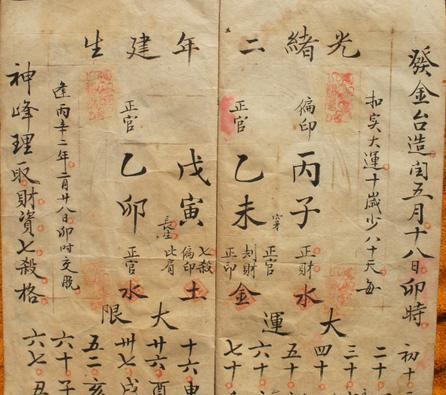 光緒二年建生
發金台造閏五月十八日卯時
扣实大運十歲少八十天每
偏印
丙子
正財
水
正官
乙未
正官
刦財
正印
金
戊寅
長生
七殺
偏印
比肩
土
正官
乙卯
正官
水
逢丙辛之年二月廿八日卯時交脫
神峰理取財資七殺格
大運
初十
二十
三十
四十
五十
六十
七十
大限
十六申
廿六酉
卅七戌
五二亥
六十子
六七丑